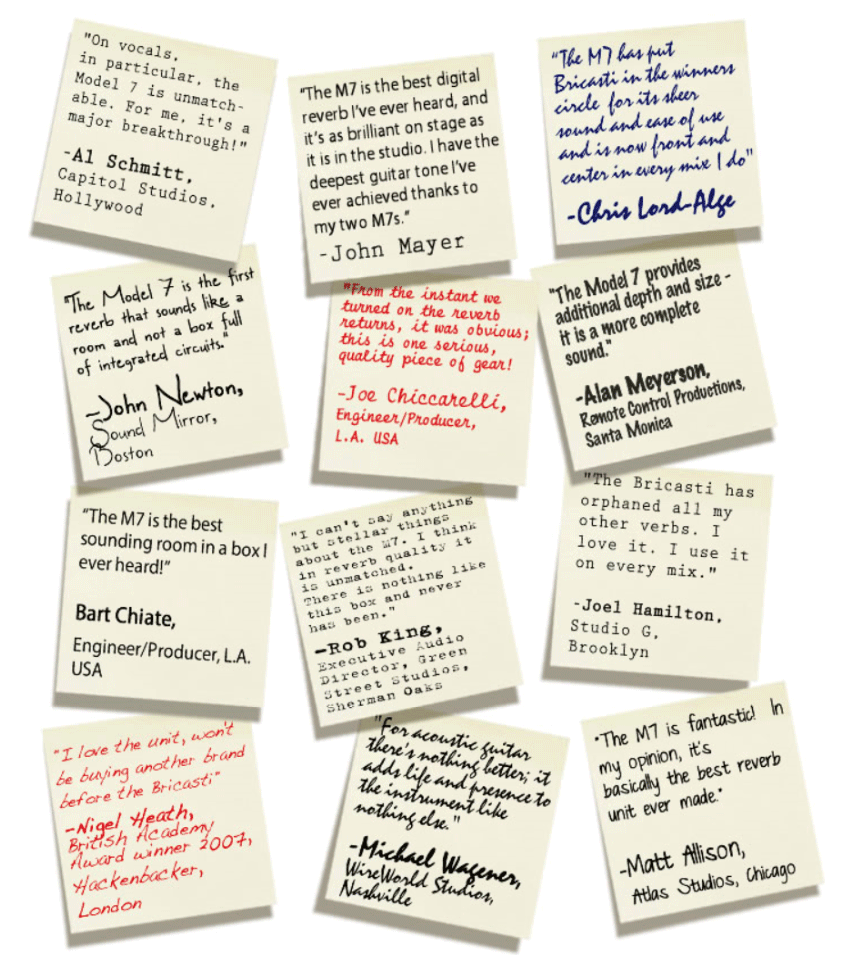 "On vocals,
in particular, the
Model 7 is unmatch-
able. For me, it's a
major breakthrough!"
-Al Schmitt,
Capitol Studios,
Hollywood
"The M7 is the best digital
reverb I've ever heard, and
it's as brilliant on stage as
it is in the studio. I have the
deepest guitar tone I've
ever achieved thanks to
my two M7s."
-John Mayer
"The M7 has put
Bricasti in the winners
circle for its sheer
sound and ease of use
and is now front and
center in every mix I do"
-Chris Lord-Alge
"The Model 7 is the first
reverb that sounds like a
room and not a box full
of integrated circuits."
-John Newton,
Sound Mirror,
Boston
"From the instant we
turned on the reverb
returns, it was obvious;
this is one serious,
quality piece of gear!
-Joe Chiccarelli,
Engineer/Producer,
L.A. USA
"The Model 7 provides
additional depth and size -
it is a more complete
sound."
-Alan Meyerson,
Remote Control Productions,
Santa Monica
"The M7 is the best
sounding room in a box I
ever heard!"
Bart Chiate,
Engineer/Producer, L.A.
USA
"I can't say anything
but stellar things
about the M7. I think
in reverb quality it
is unmatched.
There is nothing like
this box and never
has been."
-Rob King,
Executive Audio
Director, Green
Street Studios,
Sherman Oaks
"The Bricasti has
orphaned all my
other verbs. I
love it. I use it
on every mix."
-Joel Hamilton,
Studio G,
Brooklyn
"I love the unit, won't
be buying another brand
before the Bricasti"
-Nigel Heath,
British Academy
Award winner 2007,
Hackenbacker,
London
"For acoustic guitar
there's nothing better; it
adds life and presence to
the instrument like
nothing else."
-Michael Wagener,
WireWorld Studios,
Nashville
"The M7 is fantastic! In
my opinion, it's
basically the best reverb
unit ever made."
-Matt Allison,
Atlas Studios, Chicago